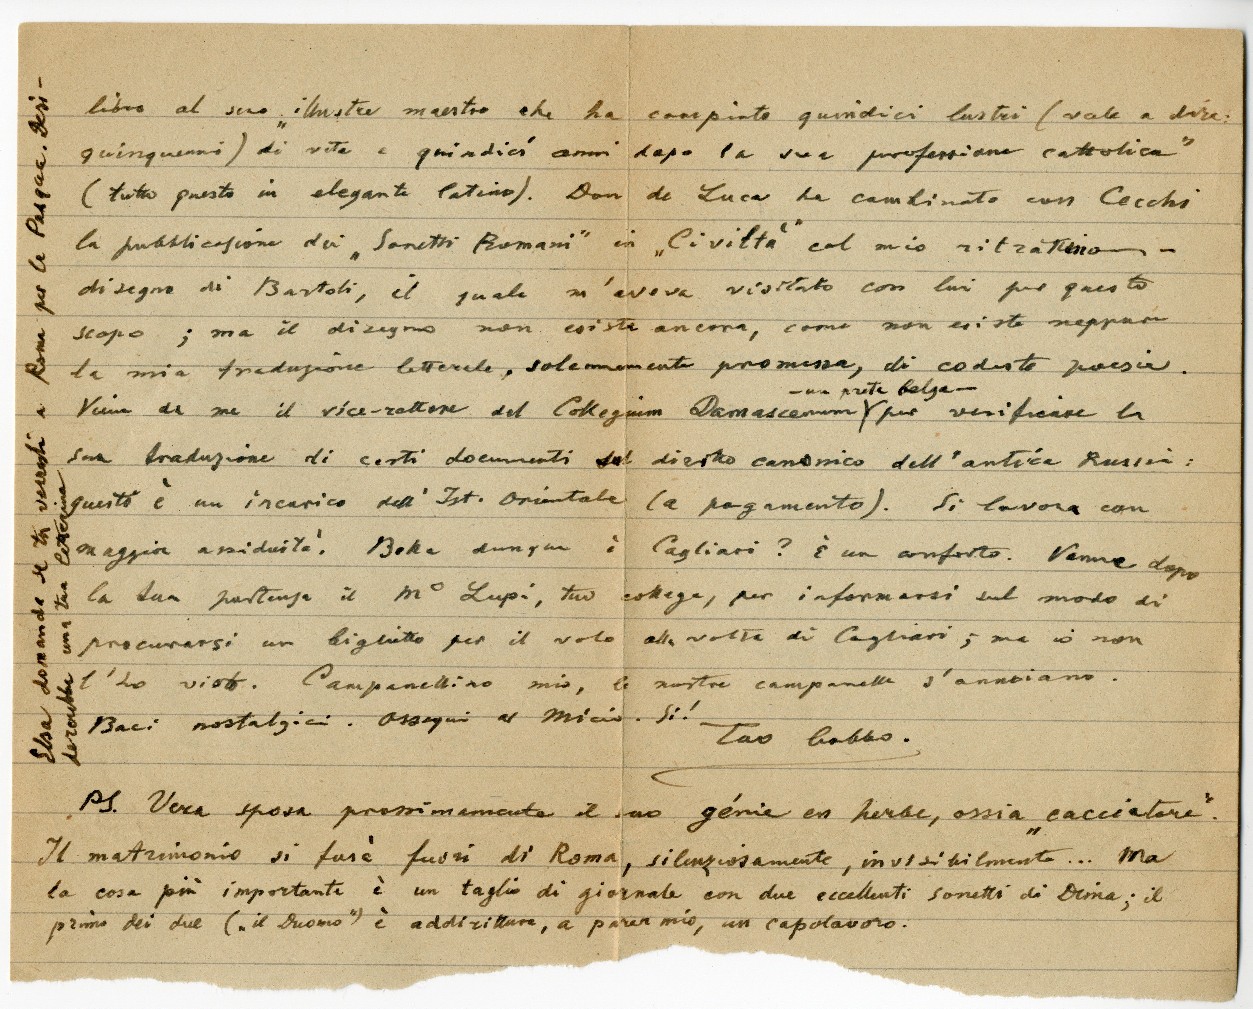 libro al suo „illustre maestro che ha compiuto quindici lustri (vale a dire:
quinquenni) di vita e quindici anni dopo la sua professione cattolica"
(tutto questo in elegante latino). Don de Luca ha combinato con Cecchi
la pubblicazione dei „Sonetti Romani" in „Civiltà" col mio ritrattino —
disegno di Bartoli, il quale m'aveva visitato con lui per questo
scopo; ma il disegno non esiste ancora, come non esiste neppure
la mia traduzione letterale, solennemente promessa, di codeste poesie.
— un prete belga —
Viene da me il vice-rettore del Collegium Damascenum per verificare la
sua traduzione di certi documenti sul diritto canonico dell'antica Russia:
questo è un incarico dell'Ist. Orientale (a pagamento). Si lavora con
maggior assiduità. Bella dunque è Cagliari? È un conforto. Venne dopo
la tua partenza il M° Lupi, tuo collega, per informarsi sul modo di
procurarsi un biglietto per il volo alla volta di Cagliari; ma io non
l'ho visto. Campanellino mio, le nostre campanelle s'annoiano.
Baci nostalgici. Ossequi al Micio. Sì!
Tuo babbo.
PS. Vera sposa prossimamente il suo génie en herbe, ossia „cacciatore".
Il matrimonio si farà fuori di Roma, silenziosamente, invisibilmente... Ma
la cosa più importante è un taglio di giornale con due eccellenti sonetti di Dima; il
primo dei due („il Duomo") è addirittura, a parer mio, un capolavoro.
Elsa domanda se tu verresti a Roma per le Pasqua. Desi-
derebbe una tua letterina